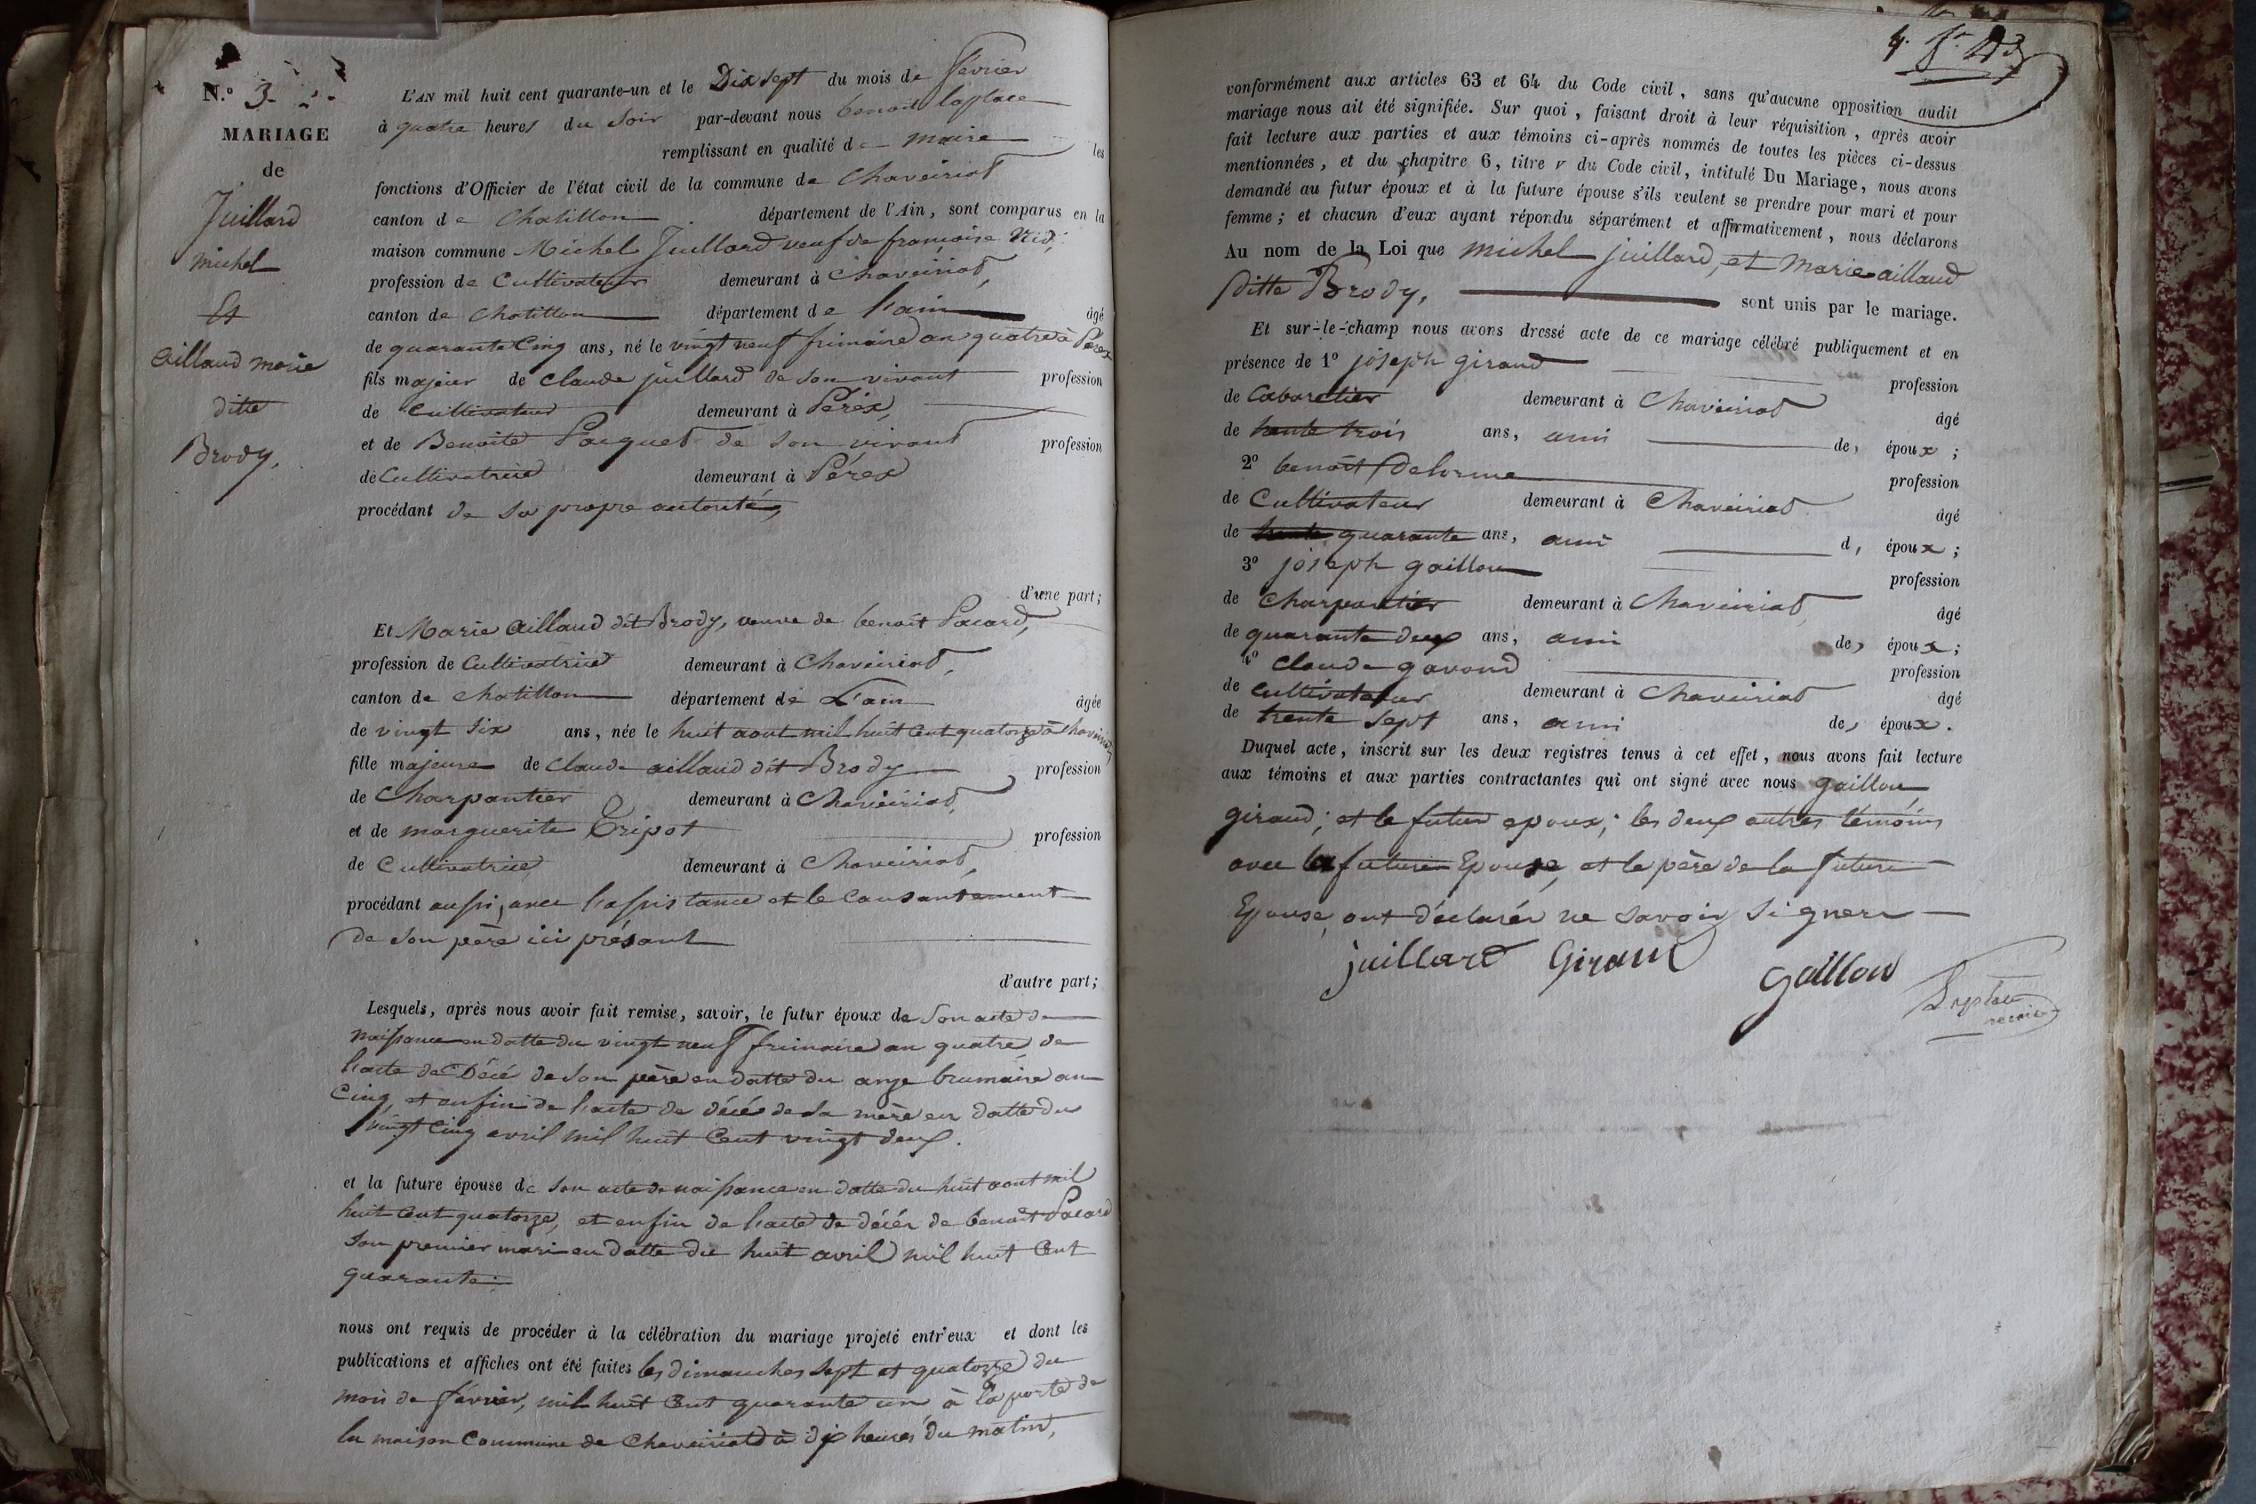 N.º 3.
MARIAGE
de
Juillard
michel
Et
aillaud marie
ditte
Brody,
L'AN mil huit cent quarante-un et le Dix sept du mois de février
à quatre heures du soir par-devant nous benoit laplace
remplissant en qualité de maire les
fonctions d'Officier de l'état civil de la commune de Chaveiriat
canton de Chatillon département de l'Ain, sont comparus en la
maison commune Michel Juillard veuf de francoise
profession de Cultivateur demeurant à Chaveiriat,
canton de Chatillon département de l'ain âgé
de quarante Cinq ans, né le vingt neuf frimaire an quatre à Pérex
fils majeur de claude juillard de son vivant profession
de Cultivateur demeurant à Pérex,
et de Benoite Pacquet de son vivant profession
de Cultivatrice demeurant à Pérex
procédant de sa propre autorité,
d'une part;
Et Marie aillaud dit Brody, veuve de benoit Pacard,
profession de Cultivatrice demeurant à Chaveiriat,
canton de Chatillon département de L'ain âgée
de vingt six ans, née le huit aout mil huit Cent quatorze à Chaveiriat
fille majeure de claude aillaud dit Brody profession
de Charpantier demeurant à Chaveiriat,
et de marguerite Tripot profession
de Cultivatrice demeurant à Chaveiriat,
procédant aussi, avec l'assistance et le Consantement
de son père ici présant
d'autre part;
Lesquels, après nous avoir fait remise, savoir, le futur époux de Son acte de
naissance en datte du vingt neuf frimaire an quatre, de
l'acte de Décé de son père en datte du onze brumaire an
Cinq, et enfin de l'acte de décé de sa mère en datte du
vingt Cinq avril mil huit Cent vingt deux.
et la future épouse de son acte de naissance en datte du huit aout mil
huit Cent quatorze, et enfin de l'acte de décés de benoit Pacard
son premier mari en datte du huit avril mil huit Cent
quarante.
nous ont requis de procéder à la célébration du mariage projeté entr'eux et dont les
publications et affiches ont été faites les dimanches Sept et quatorze du
mois de février, mil huit Cent quarante un, à la porte de
la maison Commune de Chaveiriat à dix heures du matin,
conformément aux articles 63 et 64 du Code civil, sans qu'aucune opposition audit
mariage nous ait été signifiée. Sur quoi, faisant droit à leur réquisition, après avoir
fait lecture aux parties et aux témoins ci-après nommés de toutes les pièces ci-dessus
mentionnées, et du chapitre 6, titre v du Code civil, intitulé Du Mariage, nous avons
demandé au futur époux et à la future épouse s'ils veulent se prendre pour mari et pour
femme; et chacun d'eux ayant répondu séparément et affirmativement, nous déclarons
Au nom de la Loi que michel juillard, et Marie aillaud
ditte Brody, sont unis par le mariage.
Et sur-le-champ nous avons dressé acte de ce mariage célébré publiquement et en
présence de 1º joseph giraud profession
de Cabaretier demeurant à Chaveiriat âgé
de trente trois ans, ami de, époux;
2º benoit Delorme profession
de Cultivateur demeurant à Chaveiriat âgé
de quarante ans, ami d, époux;
3º joseph gaillou profession
de Charpantier demeurant à Chaveiriat, âgé
de quarante deux ans, ami de, époux;
4º claude gavand profession
de cultivateur demeurant à Chaveiriat âgé
de trente sept ans, ami de, époux.
Duquel acte, inscrit sur les deux registres tenus à cet effet, nous avons fait lecture
aux témoins et aux parties contractantes qui ont signé avec nous gaillou,
giraud; et le futur epoux; les deux autres témoins
avec la future Epouse, et le père de la future
Epouse, ont déclarér ne savoir signer
juillard Giraud
gaillou
Laplace
maire